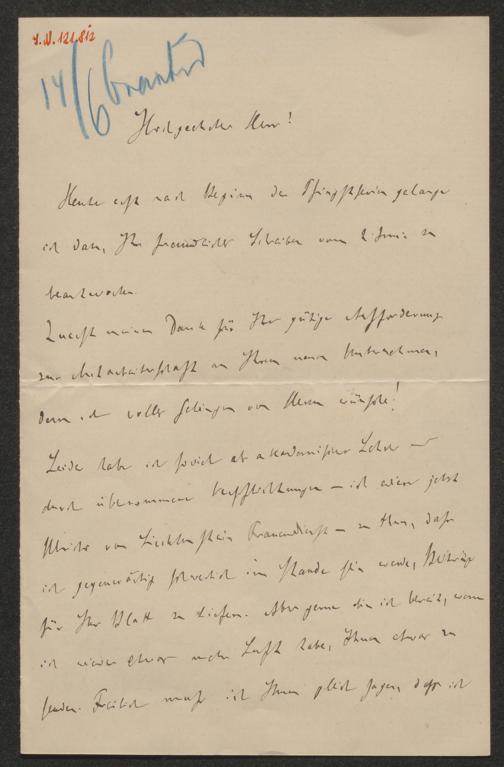 I.N. 121.812
14/6 beantw
Hochgeehrter Herr!
Heute erst nach Beginn der Pfingstferien gelange
ich dazu, Ihr freundliches Schreiben vom 2. Juni zu
beantworten.
Zuerst meinen Dank für Ihre gütige Aufforderung
zur Mitarbeiterschaft an Ihrem neuen Unternehmen,
dem ich volles Gelingen von Herzen wünsche!
Leider habe ich soviel als akademischer Lehrer
durch übernommene Verpflichtungen – ich ediere jetzt
Ulrichs von Liechtenstein Frauendienst – zu thun, dass
ich gegenwärtig schwerlich im Stande sein werde, Beiträge
für Ihr Blatt zu liefern. Aber gerne bin ich bereit, wenn
ich wieder etwas mehr Luft habe, Ihnen etwas zu
senden. Freilich muss ich Ihnen gleich sagen, dass ich